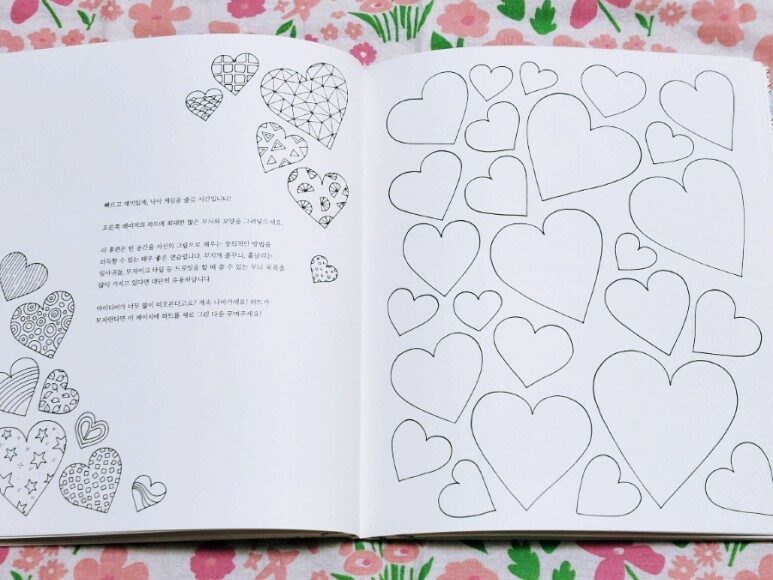 빠르고 재미있게, 낙서 게임을 즐길 시간입니다!
오른쪽 페이지의 하트에 최대한 많은 무늬와 모양을 그려넣으세요.
이 훈련은 빈 공간을 자신의 그림으로 채우는 창의적인 방법을
터득할 수 있는 매우 좋은 연습입니다. 무지개 줄무늬, 흩날리는
잎사귀들, 모자이크 타일 등 드로잉을 할 때 쓸 수 있는 무늬 목록을
많이 가지고 있다면 대단히 유용하답니다.
아이디어가 너무 많이 떠오른다고요? 계속 나아가세요! 하트가
모자란다면 이 페이지에 하트를 새로 그린 다음 꾸며주세요!